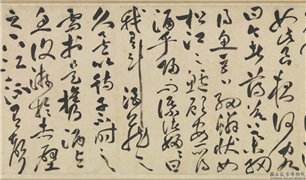 如此良夜何客
曰今者薄暮舉網
得魚巨口細鱗狀如
松江之鱸顧安所得
酒乎歸而謀諸婦婦曰
我有斗酒藏之
久矣以待子不時之
需於是攜酒與
魚復遊於赤壁
之下江流有聲